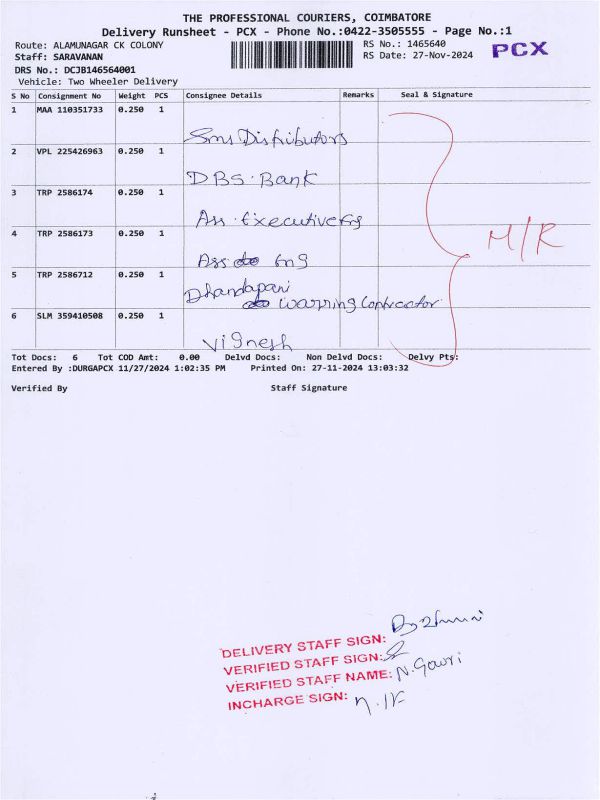 THE PROFESSIONAL COURIERS, COIMBATORE
Delivery Runsheet - PCX - Phone No.:0422-3505555 - Page No.:1
Route: ALAMUNAGAR CK COLONY RS No.: 1465640 PCX
Staff: SARAVANAN RS Date: 27-Nov-2024
DRS No.: DCJB146564001
Vehicle: Two Wheeler Delivery
S No Consignment No Weight PCS Consignee Details Remarks Seal & Signature
1 MAA 110351733 0.250 1
Sms Distributors
2 VPL 225426963 0.250 1
DBS Bank
3 TRP 2586174 0.250 1
Ass. Executive Eng
4 TRP 2586173 0.250 1
M/R
Ass Eng
5 TRP 2586712 0.250 1
Dhandapani
Contractor
6 SLM 359410508 0.250 1
Vignesh
Tot Docs: 6 Tot COD Amt: 0.00 Delvd Docs: Non Delvd Docs: Delvy Pts:
Entered By :DURGAPCX 11/27/2024 1:02:35 PM Printed On: 27-11-2024 13:03:32
Verified By Staff Signature
DELIVERY STAFF SIGN:
VERIFIED STAFF SIGN:
VERIFIED STAFF NAME: N. Gowri
INCHARGE SIGN: